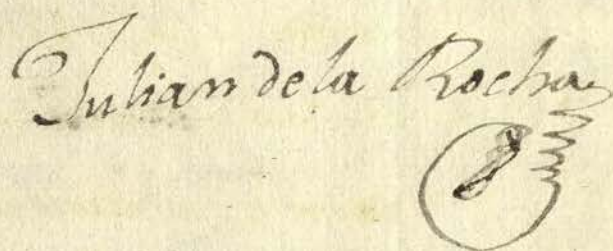 Julian de la Rocha